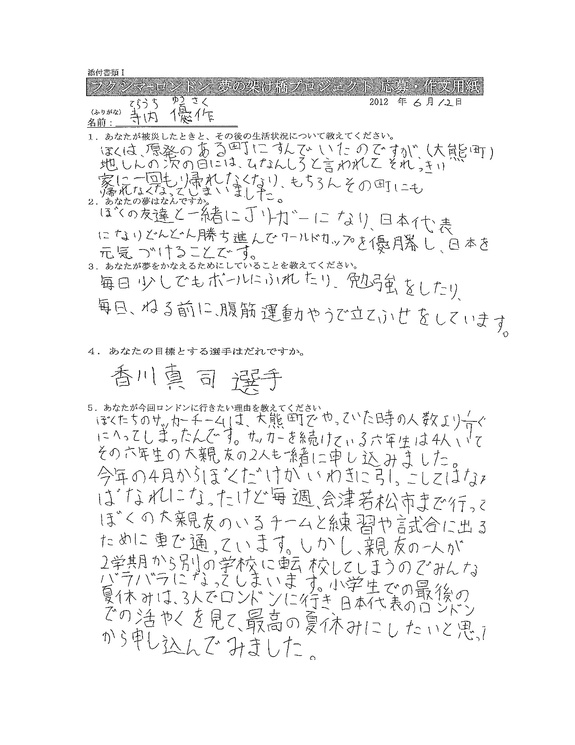 添付書類1
フクシマ-ロンドン 夢の架け橋プロジェクト 応募・作文用紙
2012 年 6月12日
てらうち ゆうさく
(ふりがな)
名前: 寺内 優作
1．あなたが被災したときと、その後の生活状況について教えてください。
ぼくは、原発のある町にすんでいたのですが、(大熊町)
地しんの次の日には、ひなんしろと言われてそれっきり
家に一回もり帰れなくなり、もちろんその町にも
帰れなくなってしまいました。
2．あなたの夢はなんですか。
ぼくの友達と一緒にJリーガーになり、日本代表
になりどんどん勝ち進んでワールドカップを優勝し、日本を
元気づけることです。
3．あなたが夢をかなえるためにしていることを教えてください。
毎日少しでもボールにふれたり、勉強をしたり、
毎日、ねる前に、腹筋運動やうで立てふせをしています。
4．あなたの目標とする選手はだれですか。
香川真司選手
5．あなたが今回ロンドンに行きたい理由を教えてください
ぼくたちのサッカーチームは、大熊町でやっていた時の人数より
にへってしまったんです。サッカーを続けている六年生は4人いて
その六年生の大親友の2人も一緒に申し込みました。
今年の4月からぼくだけがいわきに引っこしてはなれ
ばなれになったけど毎週、会津若松市まで行って
ぼくの大親友のいるチームと練習や試合に出る
ために車で通っています。しかし、親友の一人が
2学期から別の学校に転校してしまうのでみんな
バラバラになってしまいます。小学生での最後の
夏休みは、3人でロンドンに行き、日本代表のロンドン
での活やくを見て、最高の夏休みにしたいと思って
から申し込んでみました。